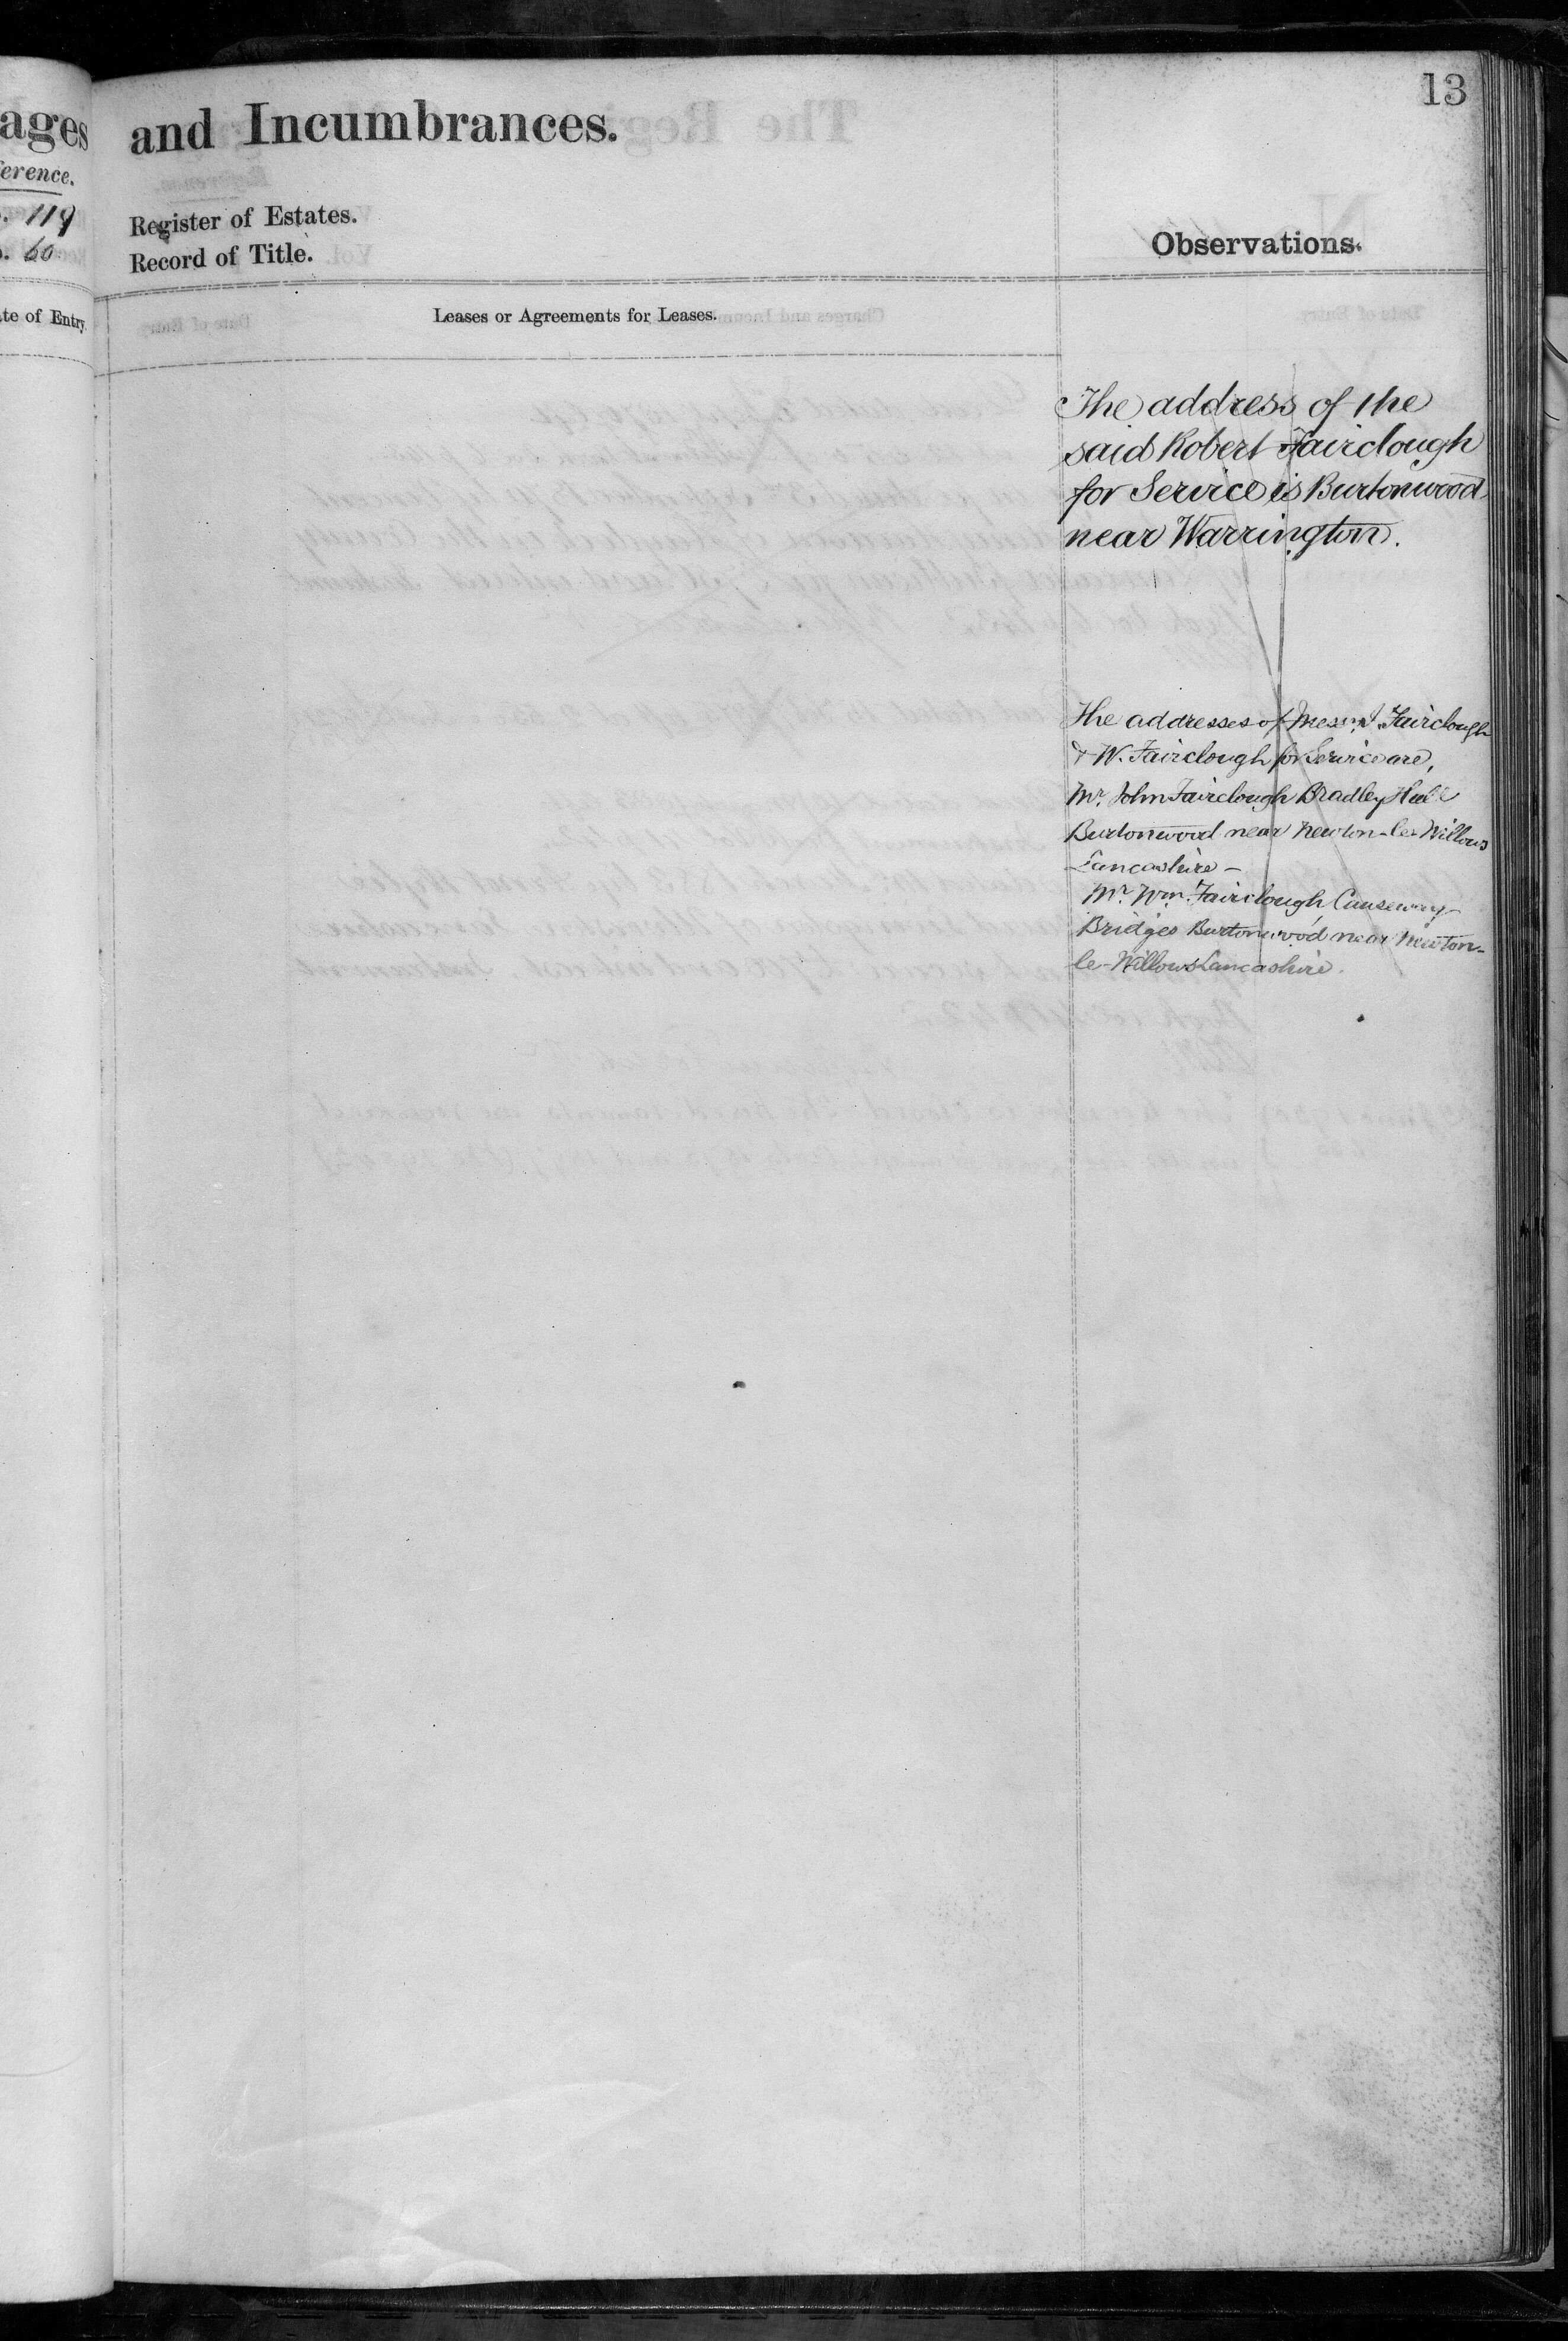 13
ages
and Incumbrances.
ference.
119
Register of Estates.
60
Record of Title.
Observations.
te of Entry.
Leases or Agreements for Leases.
The address of the
said Robert Fairclough
for Service is Burtonwood
near Warrington.
The addresses of Fairclough
& W. Fairclough for Service are,
Mr. John Fairclough Bradley Hall
Burtonwood near Newton-le-Willows
Lancashire -
Mr. Wm. Fairclough Causeway
Bridges Burtonwood near Newton-
le-Willows Lancashire.